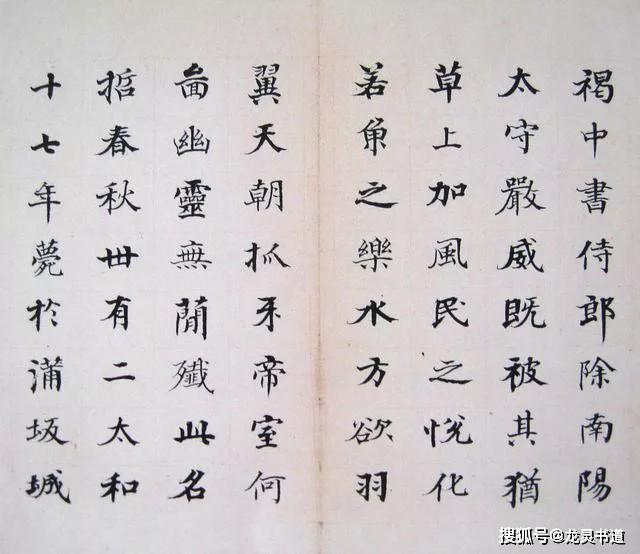 褐中書侍郎除南陽
太守嚴威既被其猶
草上加風民之悅化
若魚之樂水方欲羽
翼天朝抓牙帝室何
啚幽靈無蕳殲此名
哲春秋卅有二太和
十七年薨於蒲坂城
搜狐号@龙灵书道